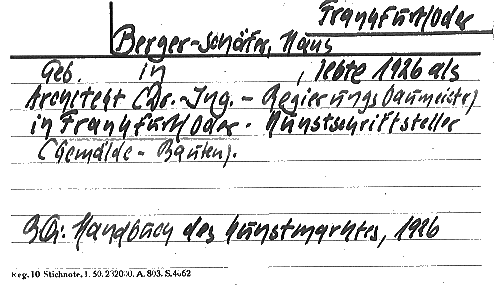 Frankfurt/Oder
Berger-Schäfer, Hans
Geb. in , lebte 1926 als
Architekt (Dr.-Ing. - Regierungsbaumeister)
in Frankfurt/Oder - Kunstschriftsteller
(Gemälde - Bauten).
BQ: Handbuch des Kunstmarktes, 1926
Reg. 10 Stichnote. 1. 50. 232000. A. 803. S.4062